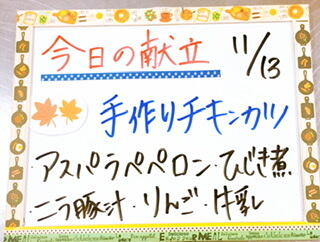 今日の献立 11/13
手作りチキンカツ
・アスパラペペロン・ひじき煮
・ニラ豚汁・りんご・牛乳